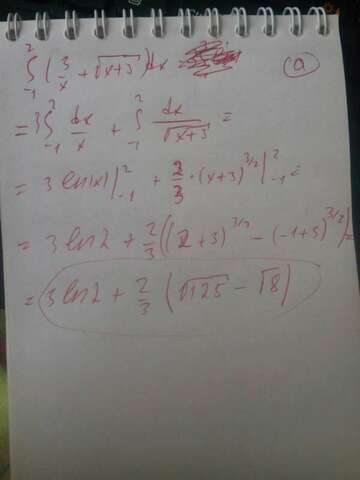 ∫₋₁² (3/x + √(x+3)) dx = (a)
= 3 ∫₋₁² dx/x + ∫₋₁² dx/√(x+3) =
= 3 ln|x| |₋₁² + 2/3 · (x+3)^(3/2) |₋₁² =
= 3 ln 2 + 2/3 ((2+3)^(3/2) − (−1+3)^(3/2)) =
= 3 ln 2 + 2/3 (√125 − √8)